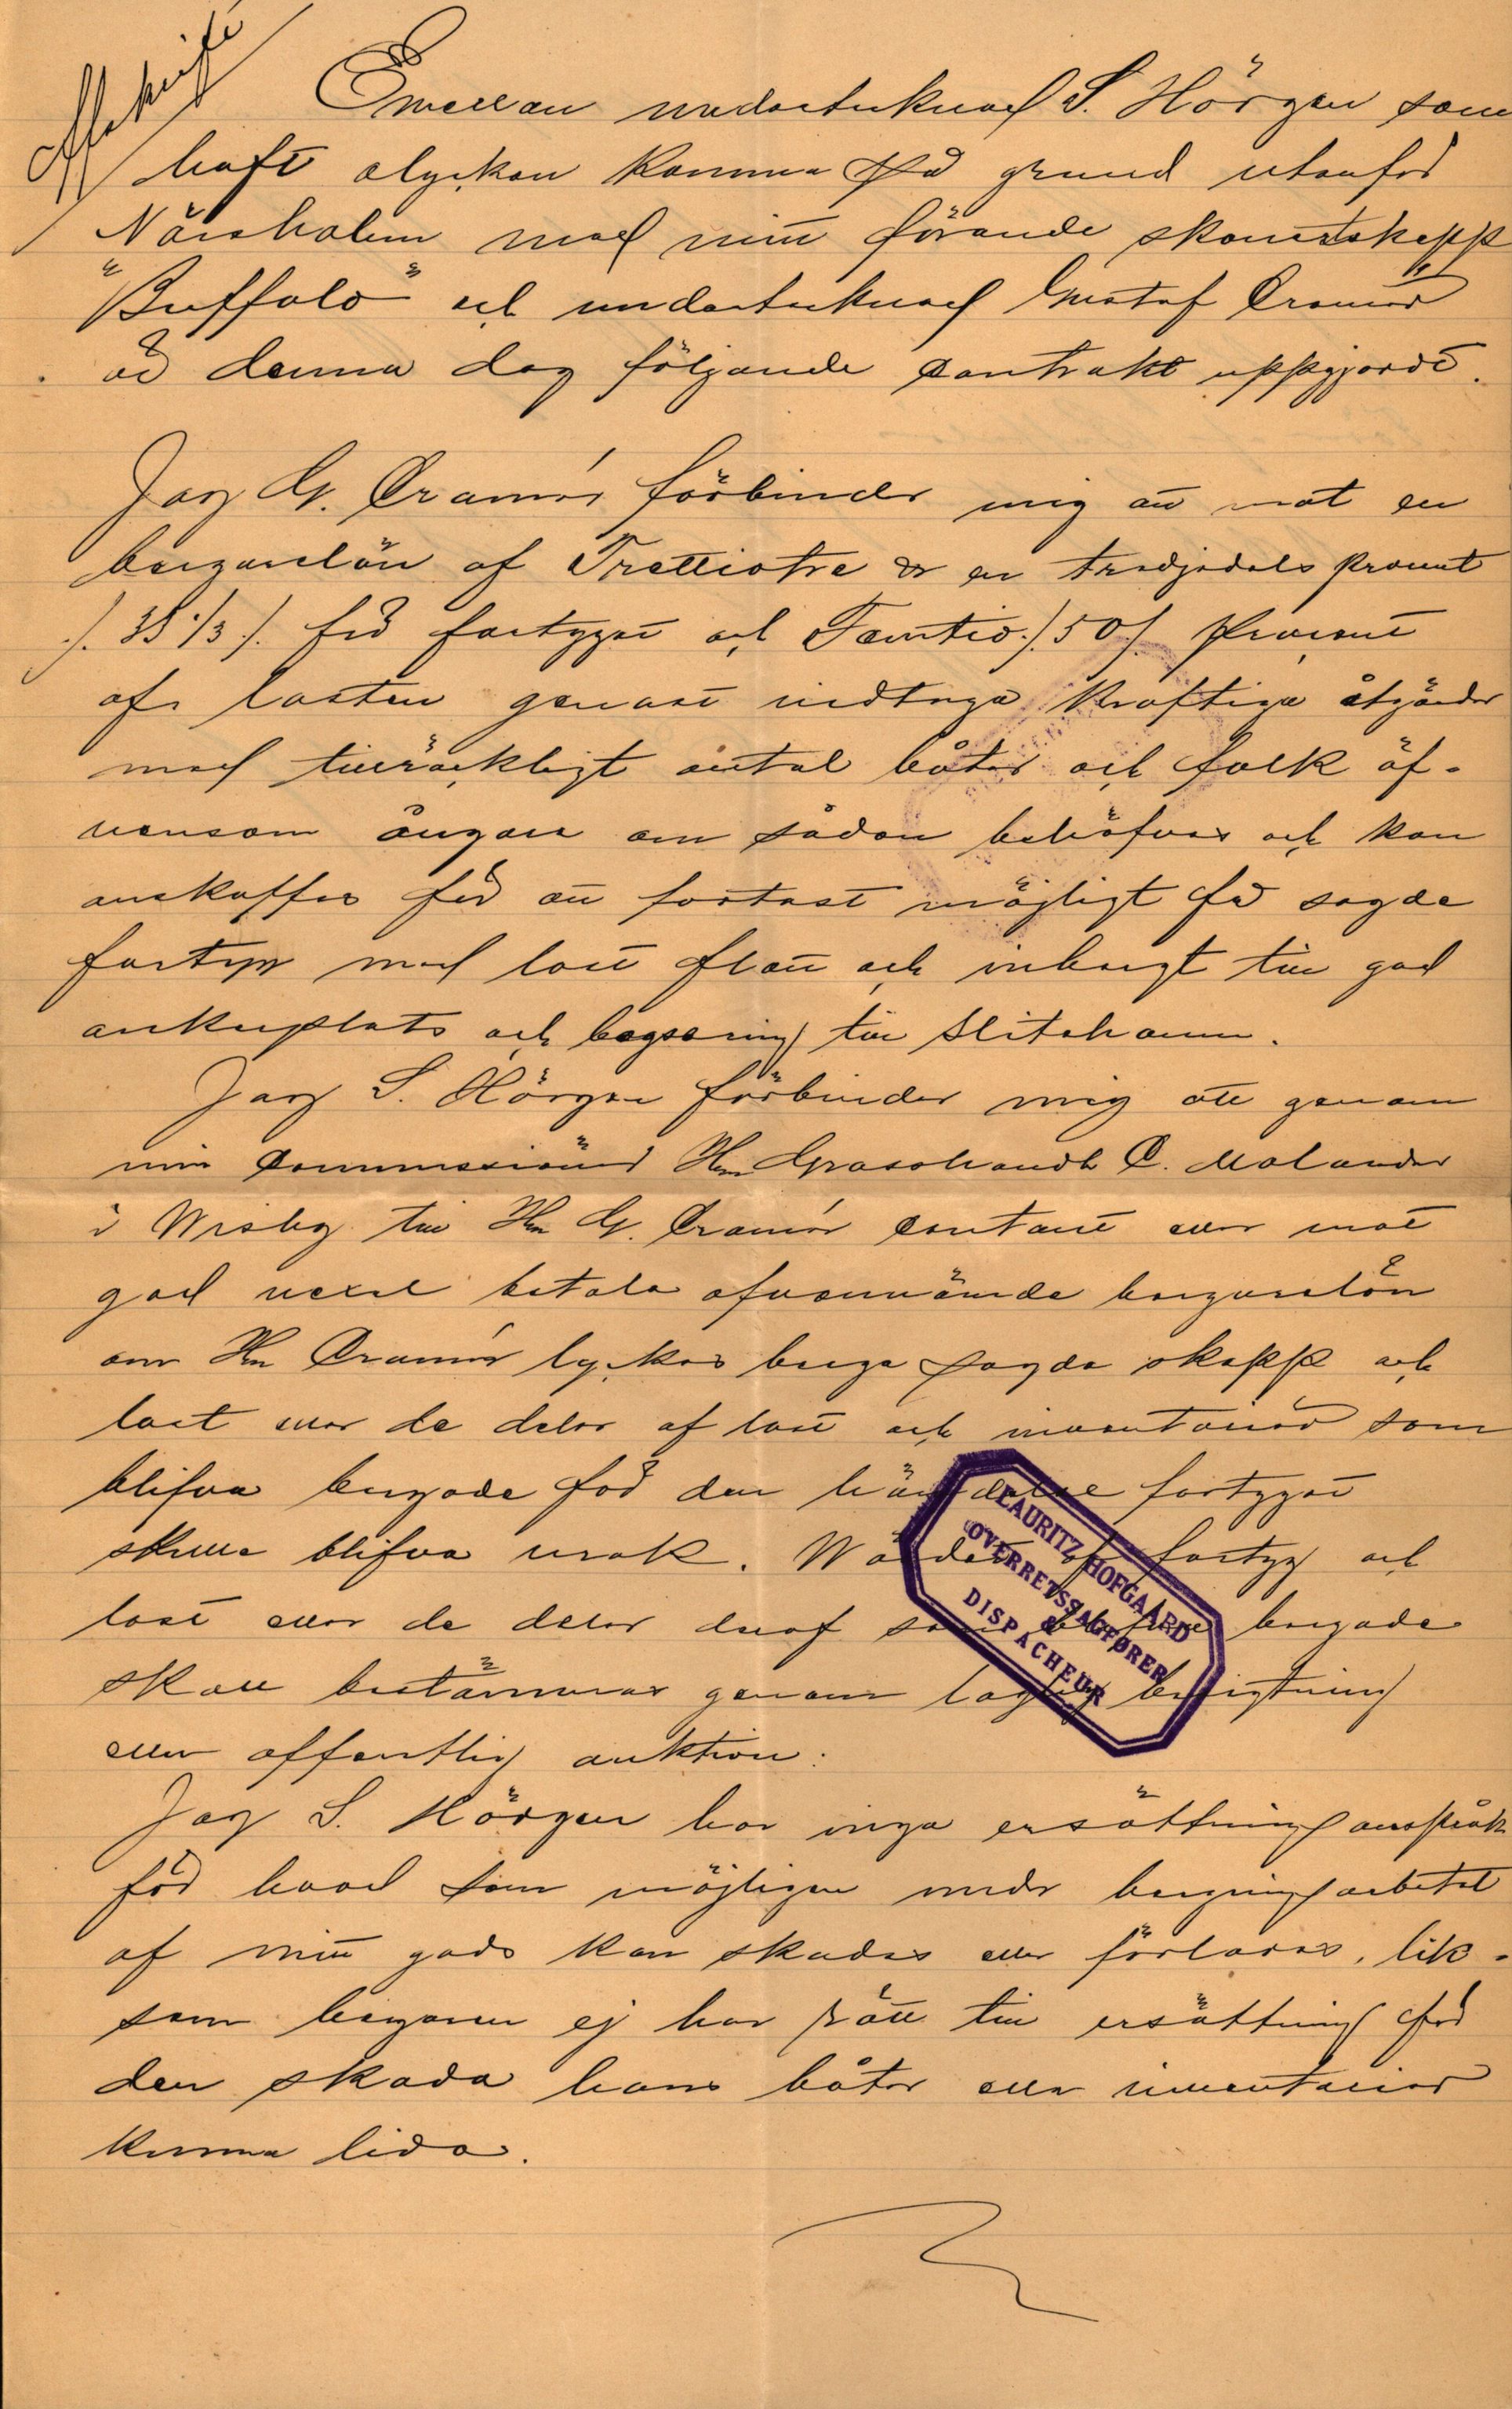 Afskrift
Emellan undertecknad S. Hörgen som
haft olyckan komma på grund utanför
Närsholm med mitt förande skonertskepp
"Buffalo" och undertecknad Gustaf Cramér
är denna dag följande contrakt uppgjordt.
Jag G. Cramér förbinder mig att mot en
bergarelön af Trettiotre & en tredjedels procent
./. 33 1/3 ./. för fartyget och Femtio ./. 50 ./. Procent
af lasten genast vidtaga kraftiga åtgärder
med tillräckligt antal båtar och folk äf-
vensom ångare om sådan behöfves och kan
anskaffas för att fortast möjligt få sagde
fartyg med last flott och inbergt till god
ankerplats och bogsering till Slitehamn.
Jag S. Hörgen förbinder mig att genom
min Commissionär Herr Grosshandl C. Molander
i Wisby till Herr G. Cramér contant eller mot
god vexel betala ofvannämnde bergarelön
om Herr Cramér lyckas berga sagde skepp och
last eller de delar af last och inventarier som
blifva bergade för den händelse fartyget
skulle blifva vrak. Värdet af fartyg och
last eller de delar deraf som blifva bergade
skall bestämmas genom laglig besigtning
eller offentlig auktion.
Jag S. Hörgen har inga ersättningsanspråk
för hvad som möjligen under bergningsarbetet
af mitt gods kan skadas eller förloras, lik-
som bergaren ej har rätt till ersättning för
den skada hans båtar eller inventarier
kunna lida.
LAURITZ HOFGAARD
OVERRETSSAGFØRER
&
DISPACHEUR